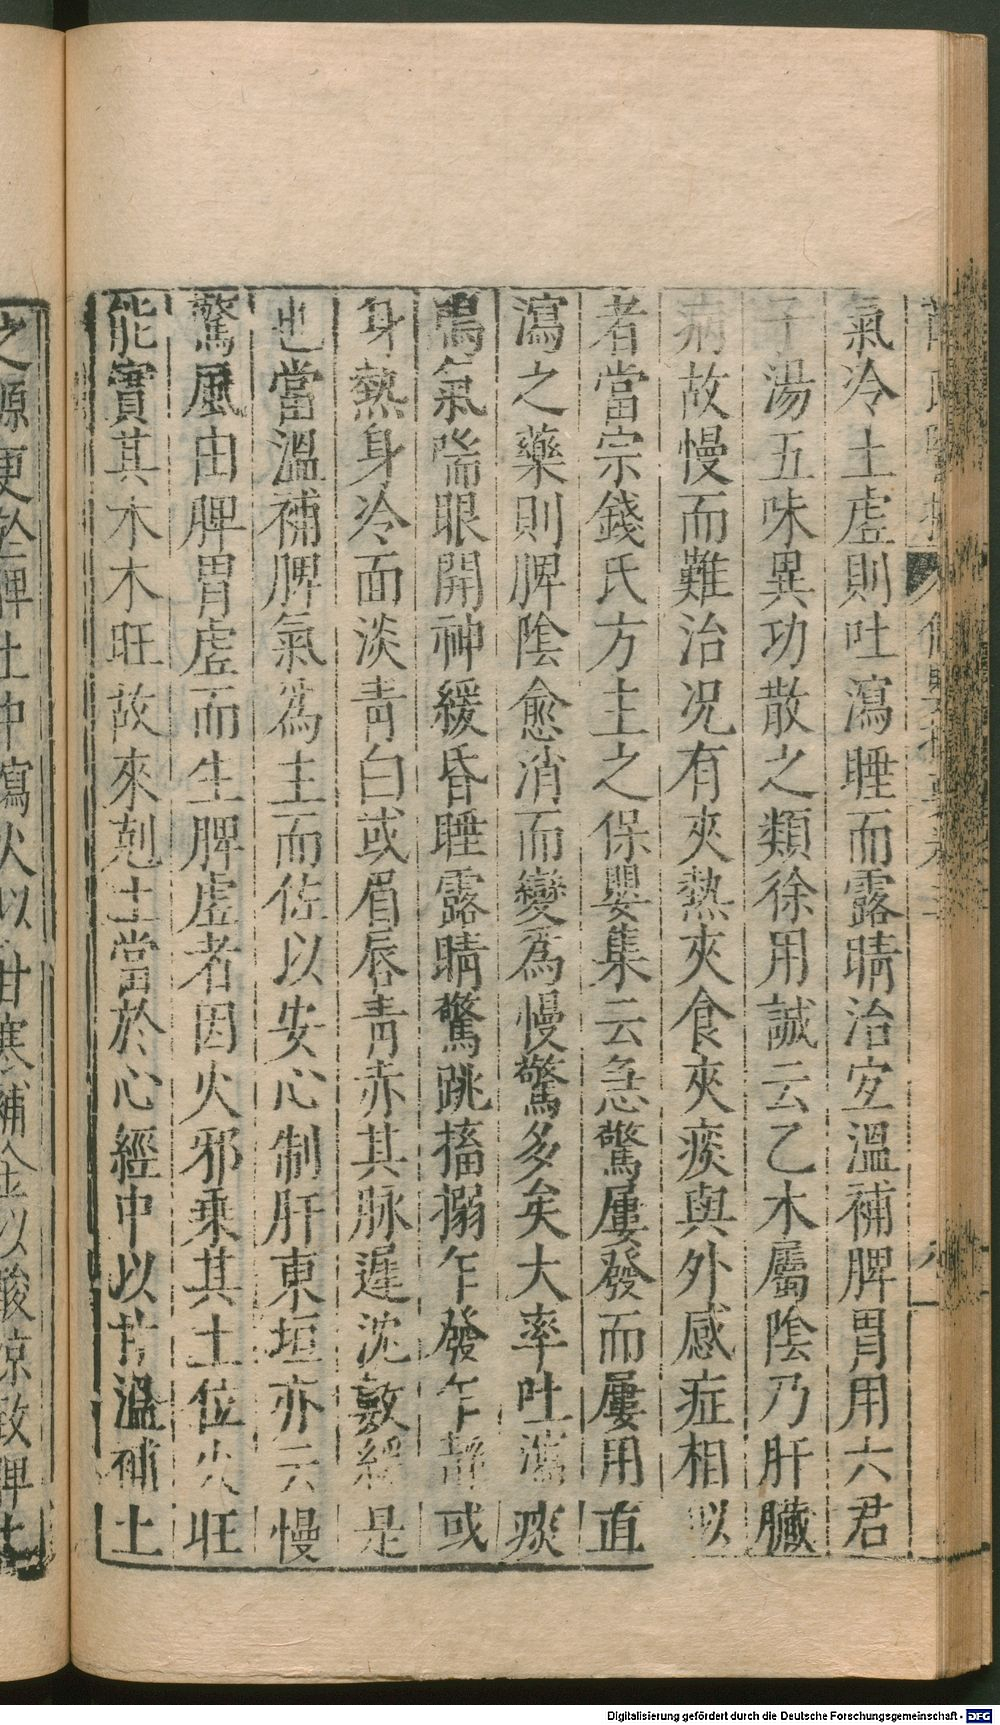 氣冷土虛則吐瀉睡而露睛治宜溫補脾胃用六君
子湯五味異功散之類徐用誠云乙木屬陰乃肝臟
病故慢而難治況有夾熱夾食夾痰與外感症相似
者當宗錢氏方主之保嬰集云急驚屢發而屢用直
瀉之藥則脾陰愈消而變為慢驚多矣大率吐瀉痰
鳴氣喘眼開神緩昏睡露睛驚跳搐搦乍發乍靜或
身熱身冷面淡青白或眉唇青赤其脉遲沈數緩是
也當溫補脾氣為主而佐以安心制肝東垣亦云慢
驚風由脾胃虛而生脾虛者因火邪乘其土位火旺
能實其木木旺故來剋土當於心經中以甘溫補土
之源更於脾土中瀉火以甘寒補金以酸凉致脾土
Digitalisierung gefördert durch die Deutsche Forschungsgemeinschaft - DFG